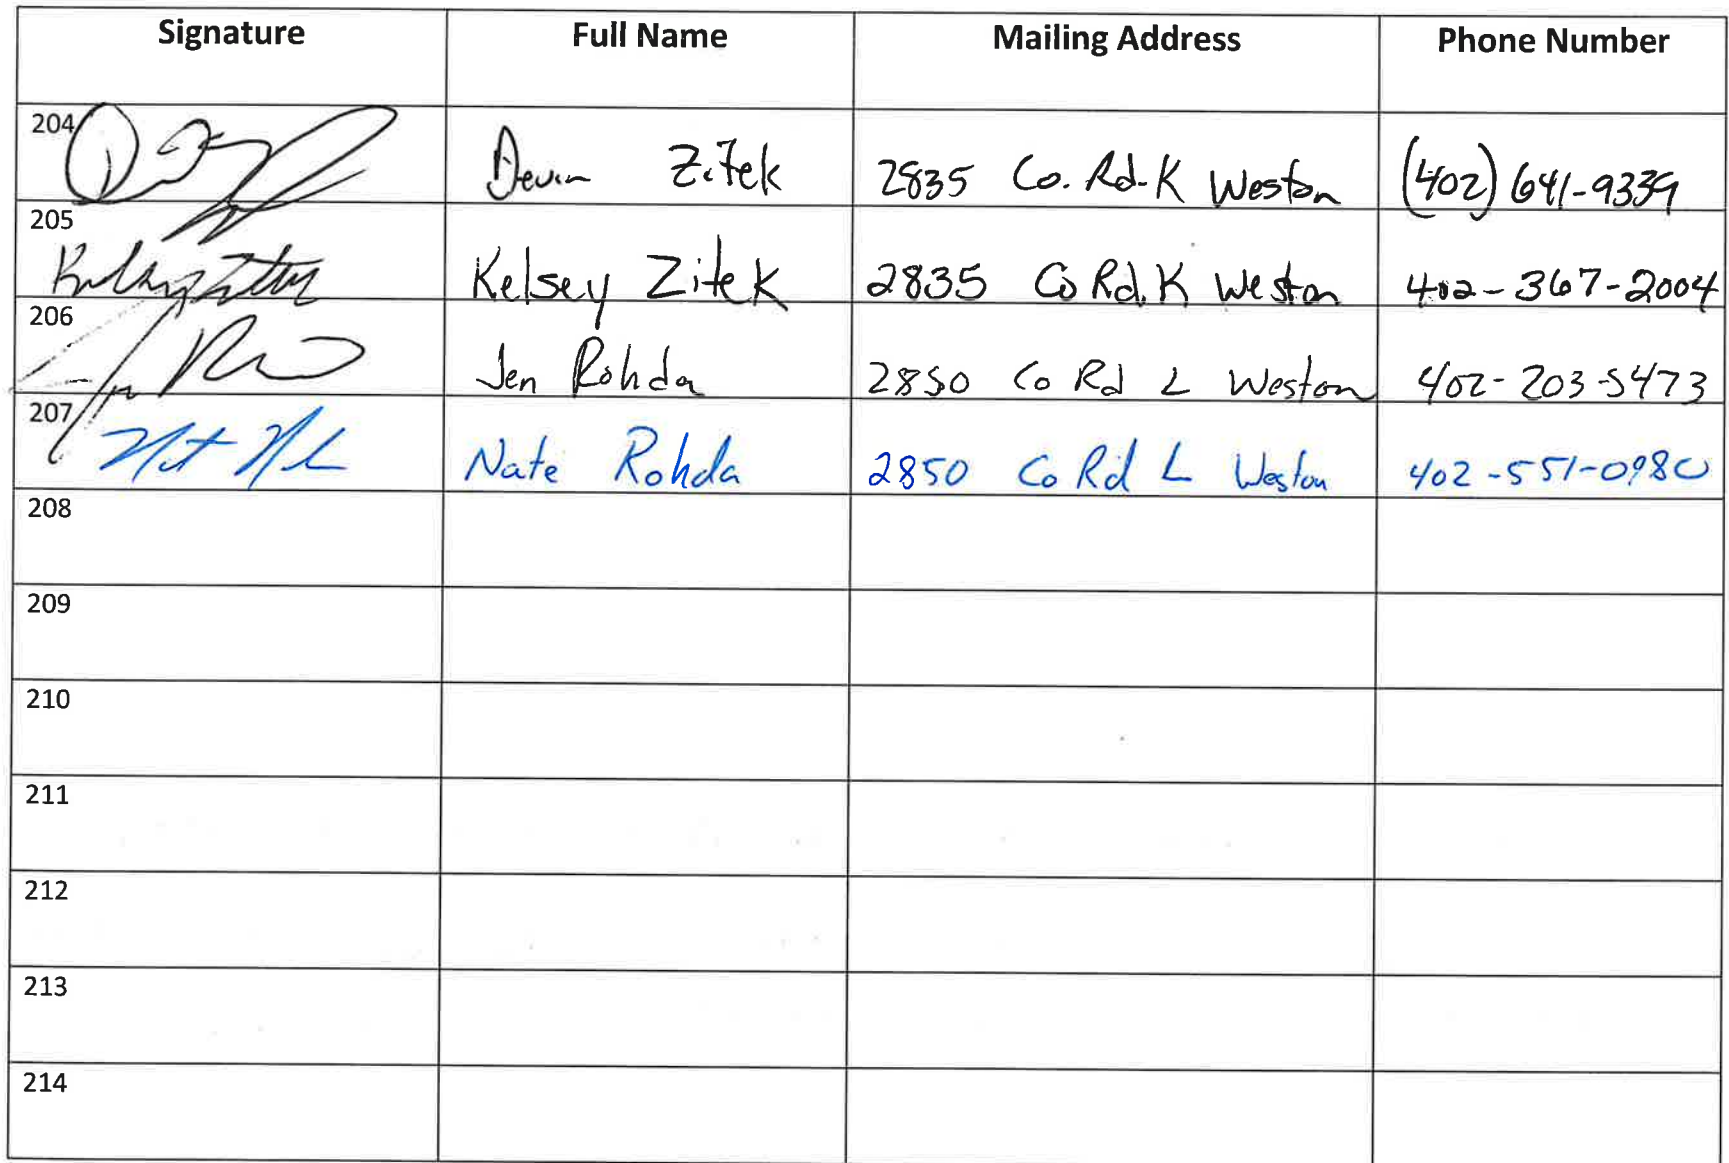 Signature Full Name Mailing Address Phone Number
204 Devin Zitek 2835 Co. Rd. K Weston (402) 641-9339
205 Kelsey Zitek 2835 Co Rd. K Weston 402-367-2004
206 Jen Rohda 2850 Co Rd L Weston 402-203-5473
207 Nate Rohda 2850 Co Rd L Weston 402-551-0980
208
209
210
211
212
213
214